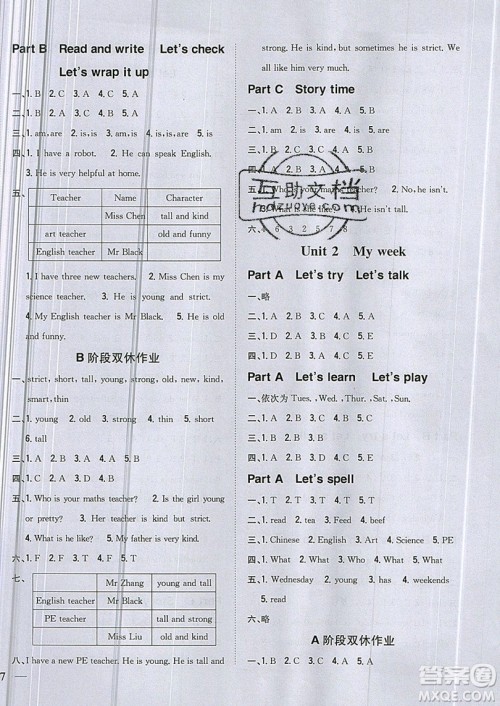 Part B Read and write Let's check
Let's wrap it up
一、1. B 2. C 3. C 4. C 5. A
二、1. B 2. A 3. B 4. B 5. A
三、1. am, are 2. is, is 3. is, is 4. is, are
四、1. I have a robot. 2. I can speak English.
3. He is very helpful at home.
五、
Teacher Name Character
Miss Chen tall and kind
art teacher old and funny
English teacher Mr Black
1. I have three new teachers. 2. Miss Chen is my
science teacher. 3. He is young and strong.
4. My English teacher is Mr Black. 5. He is old
and funny.
B 阶段双休作业
一、strict, short, tall, young, strong, old, new, kind,
smart, thin
二、1. young 2. old 3. strong 4. short
5. tall
三、1. A 2. B 3. C 4. B 5. A
四、1. C 2. D 3. A 4. E 5. B
五、1. Who is your maths teacher? 2. Is the girl young
or pretty? 3. My teacher is kind but strict.
4. What is he like? 5. My father is very funny.
六、1. F 2. T 3. T 4. F 5. T
七、
Mr Zhang young and tall
English teacher Mr Black
PE teacher tall and strong
Miss Liu old and kind
八、I have a new PE teacher. He is young. He is tall and
strong. He is kind, but sometimes he is strict. We all
like him very much.
Part C Story time
一、1. C 2. B 3. A 4. A 5. B
四、
teacher? 2. No, he isn't.
六、4 6 2 3 5 1 7 8
互助文档
hdzuoye.com
Unit 2 My week
Part A Let's try Let's talk
一、略
二、1. A 2. B 3. B 4. A 5. A
三、1. D 2. C 3. B 4. A 5. E
Part A Let's learn Let's play
一、依次为 Tues. , Wed. , Thur. , Sat. , Sun.
二、1. A 2. A 3. B 4. B 5. B
三、1. B 2. A 3. A 4. B 5. A
四、1. D 2. A 3. E 4. B 5. C
Part A Let's spell
一、略
二、1. read 2. tea 3. beef 4. feed 5. eat
三、1. A 2. B 3. A 4. B 5. A
四、1. Chinese 2. English 3. Art 4. Science 5. PE
五、1. Wednesday 2. young 3. has 4. weekends
5. read
六、略
A 阶段双休作业
一、1. B 2. A 3. C 4. B 5. A
7
答案圈
MXQE.COM